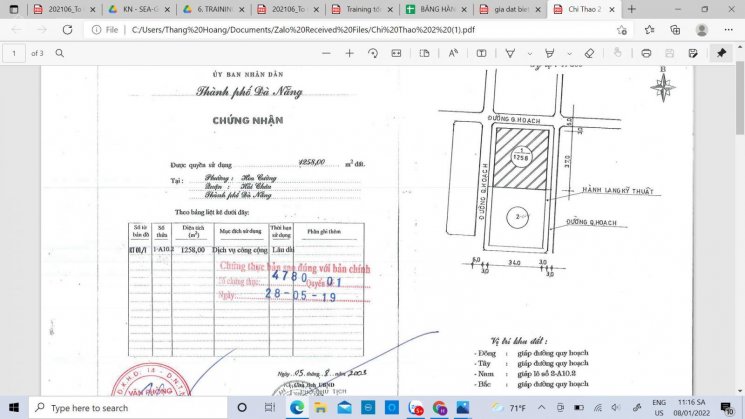 202106_To
KN - SEA-G
6. TRAINING
202106_To
Training tó
BẢNG HÀN
gia dat bien
Chi Thao 2
File
C:/Users/Thang%20Hoang/Documents/Zalo%20Received%20Files/Chi%20Thao%202%20(1).pdf
1 of 3
ỦY BAN NHÂN DÂN
Thành phố Đà Nẵng
CHỨNG NHẬN
Được quyền sử dụng 1258,00 m² đất.
Tại : Phường : Hòa Cường
Quận : Hải Châu
Thành phố Đà Nẵng
Theo bảng liệt kê dưới đây:
Số tờ bản đồ
Số thửa
Diện tích (m²)
Mục đích sử dụng
Thời hạn sử dụng
Phần ghi thêm
KT 00/1 1-A10.2 1258,00 Dịch vụ công cộng Lâu dài
Chứng thực bản sao đúng với bản chính
Số chứng thực: 4780 Quyển số: 01
Ngày: 28-05-19
Ngày 05 tháng 8 năm 2003
VĂN PHÒNG
B
ĐƯỜNG Q.HOẠCH
5,0
3,0
1
1258
37,0
ĐƯỜNG Q.HOẠCH
HÀNH LANG KỸ THUẬT
2
ĐƯỜNG Q.HOẠCH
5,0
3,0
34,0
3,0
3,0
Vị trí khu đất:
- Đông : giáp đường quy hoạch
- Tây : giáp đường quy hoạch
- Nam : giáp lô số 2-A10.2
- Bắc : giáp đường quy hoạch
Type here to search
71°F
ENG
11:16 SA
08/01/2022